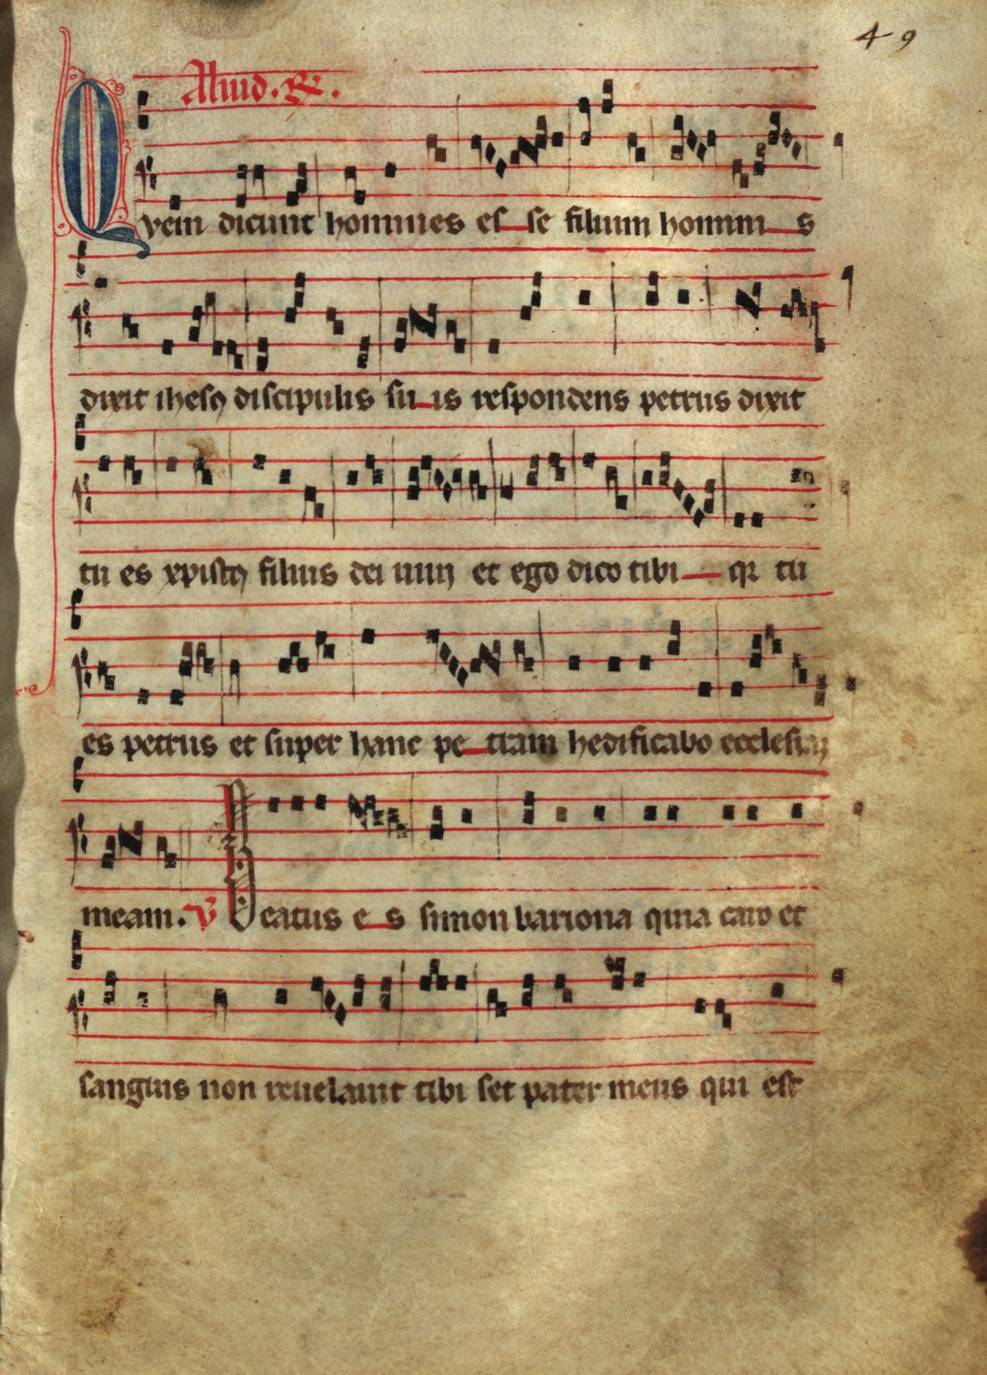 49
Aliud. R.
Qvem dicunt homines es se filium homini s
dixit ihesꝰ discipulis su is respondens petrus dixit
tu es xpistꝰ filius dei uiui et ego dico tibi qr tu
es petrus et super hanc pe tram hedificabo ecclesiaꝫ
meam. V Beatus e s simon bariona quia caro et
sanguis non reuelauit tibi set pater meus qui est